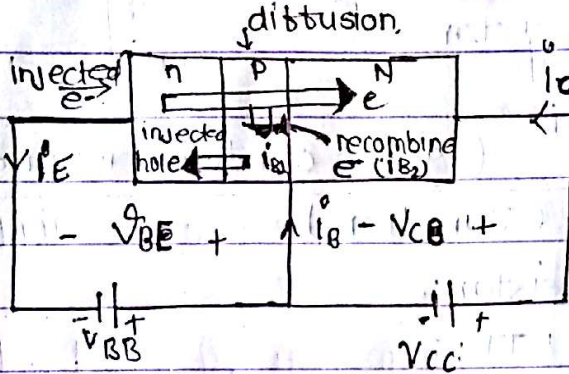 diffusion
injected
e-
n
P
N
e
ic
injected
hole
iB1
recombine
e- (iB2)
iE
- VBE +
iB
- VCB +
- +
VBB
- +
VCC